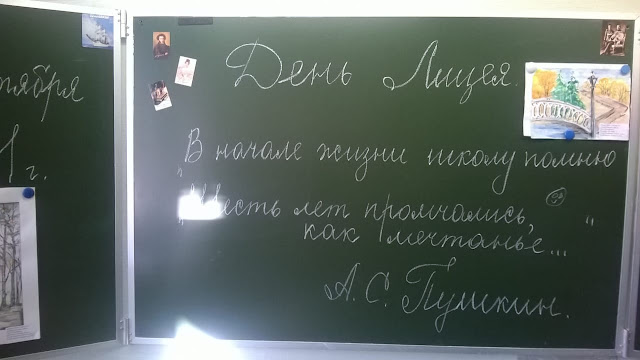 тября
1 г.
День Лицея.
"В начале жизни школу помню
"Шесть лет промчались,
как мечтанье... "
А. С. Пушкин.